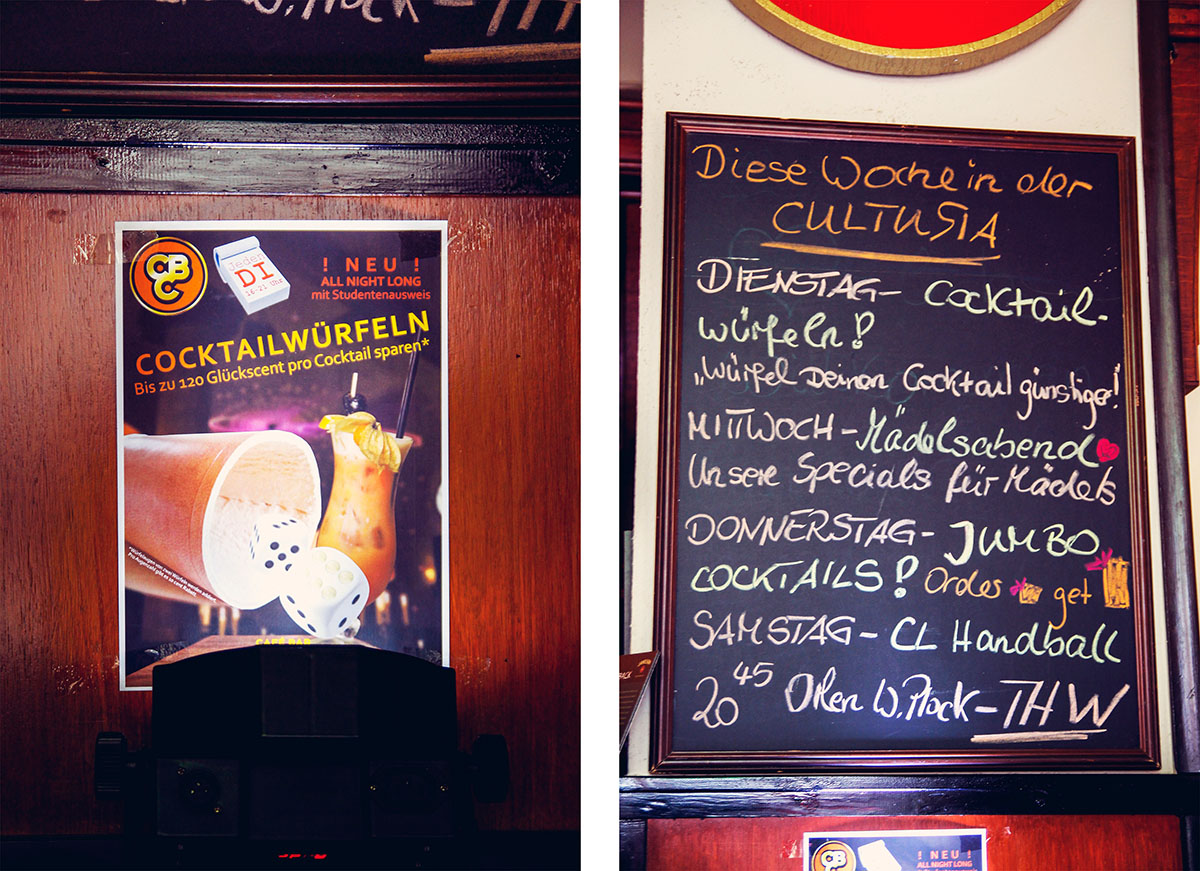 W. Plock – THW
CBC
Jeder
DI
16-21 Uhr
! NEU !
ALL NIGHT LONG
mit Studentenausweis
COCKTAILWÜRFELN
Bis zu 120 Glückscent pro Cocktail sparen*
CAFÉ BAR
Diese Woche in der
CULTURIA
DIENSTAG– Cocktail-
würfeln!
„Würfel Deinen Cocktail günstiger!
MITTWOCH–Mädelsabend
Unsere Specials für Mädels
DONNERSTAG– JUMBO
COCKTAILS! Order get
SAMSTAG– CL Handball
20 45 Orlen W.Plock–THW
CBC
! NEU !
ALL NIGHT LONG